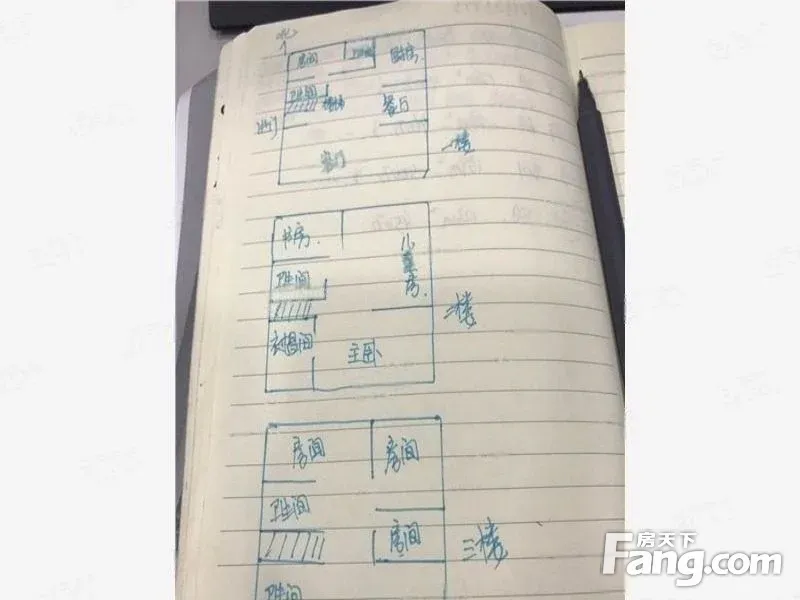 北
房间
厨房
卫生间
餐厅
进门
客厅
一楼
书房
儿童房
卫生间
二楼
衣帽间
主卧
房间
房间
卫生间
房间
三楼
卫生间
房天下
Fang.com